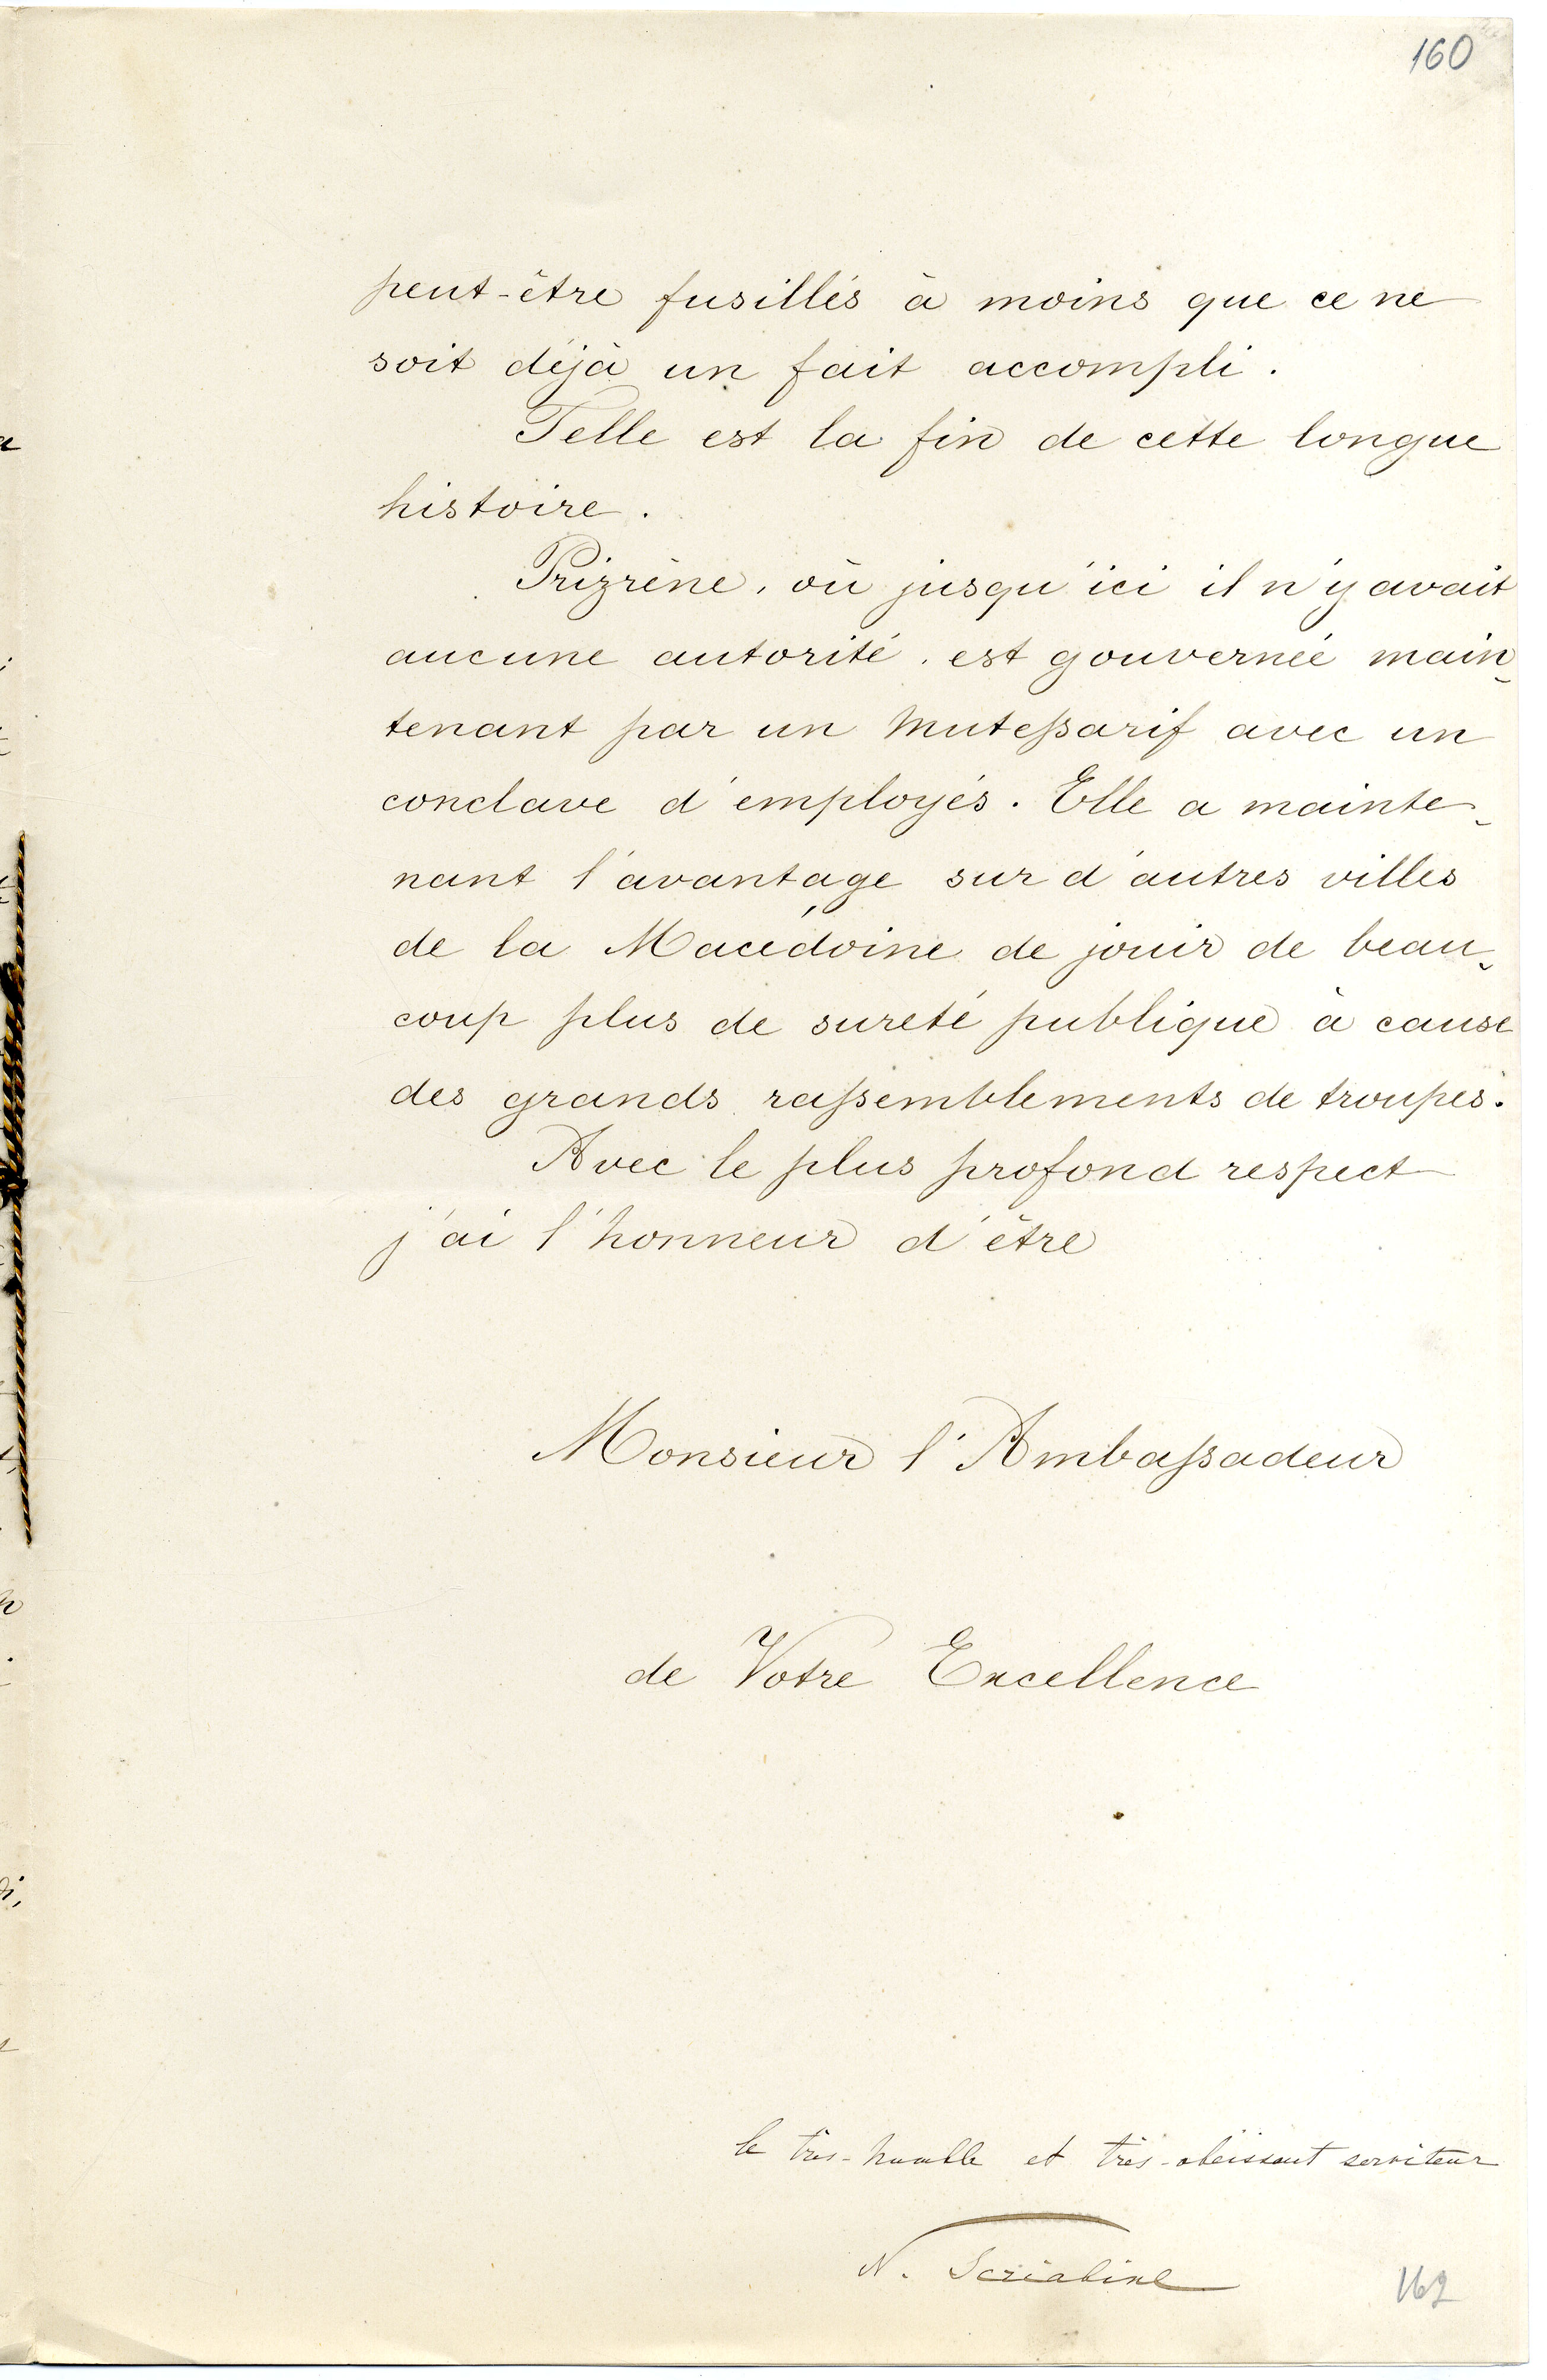 160
peut-être fusillés à moins que ce ne
soit déjà un fait accompli.
Telle est la fin de cette longue
histoire.
Prizrène, où jusqu'ici il n'y avait
aucune autorité, est gouvernée main-
tenant par un Mutessarif avec un
conclave d'employés. Elle a mainte-
nant l'avantage sur d'autres villes
de la Macédoine de jouir de beau-
coup plus de sureté publique à cause
des grands rassemblements de troupes.
Avec le plus profond respect
j'ai l'honneur d'être
Monsieur l'Ambassadeur
de Votre Excellence
le très-humble et très-obéissant serviteur
N. Scriabine
162